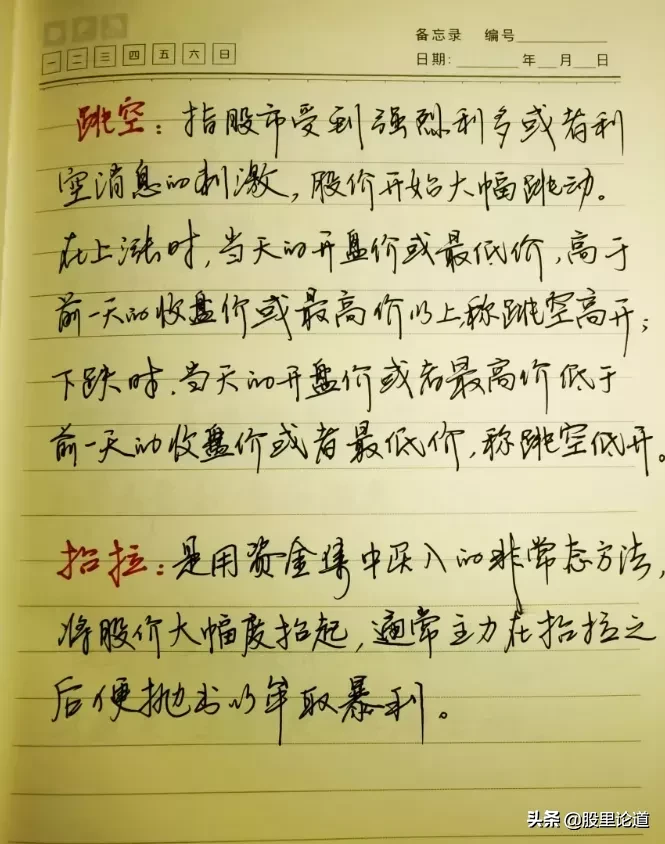 备忘录 编号
一 二 三 四 五 六 日 日期: 年 月 日
跳空：指股市受到强烈利多或者利
空消息的刺激，股价开始大幅跳动。
在上涨时，当天的开盘价或最低价，高于
前一天的收盘价或最高价以上，称跳空高开；
下跌时，当天的开盘价或者最高价低于
前一天的收盘价或者最低价，称跳空低开。
抬拉：是用资金集中买入的非常态方法，
将股价大幅度抬起，通常主力在抬拉之
后便抛出以牟取暴利。
头条 @股里论道